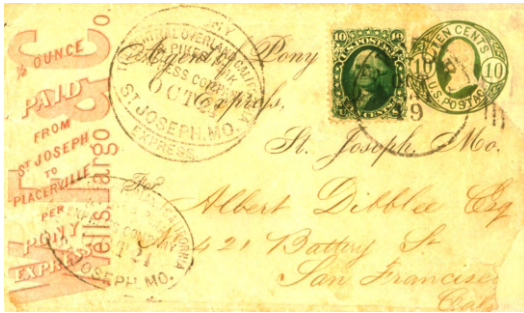 ½ OUNCE
PAID
FROM
ST JOSEPH
TO
PLACERVILLE
PER
PONY
EXPRESS
Wells, Fargo & Co.
THE CENTRAL OVERLAND CALIFORNIA
PIKES PEAK
EXPRESS COMPANY
OCT
ST. JOSEPH, MO.
EXPRESS
10 10
U.S. POSTAGE
TEN CENTS
10 10
U.S. POSTAGE
Agent of Pony
Express,
St. Joseph, Mo.
For
Albert Dibblee Esq
No 421 Battery St
San Francisco
Cala
EXPRESS COMPANY
JOSEPH, MO.